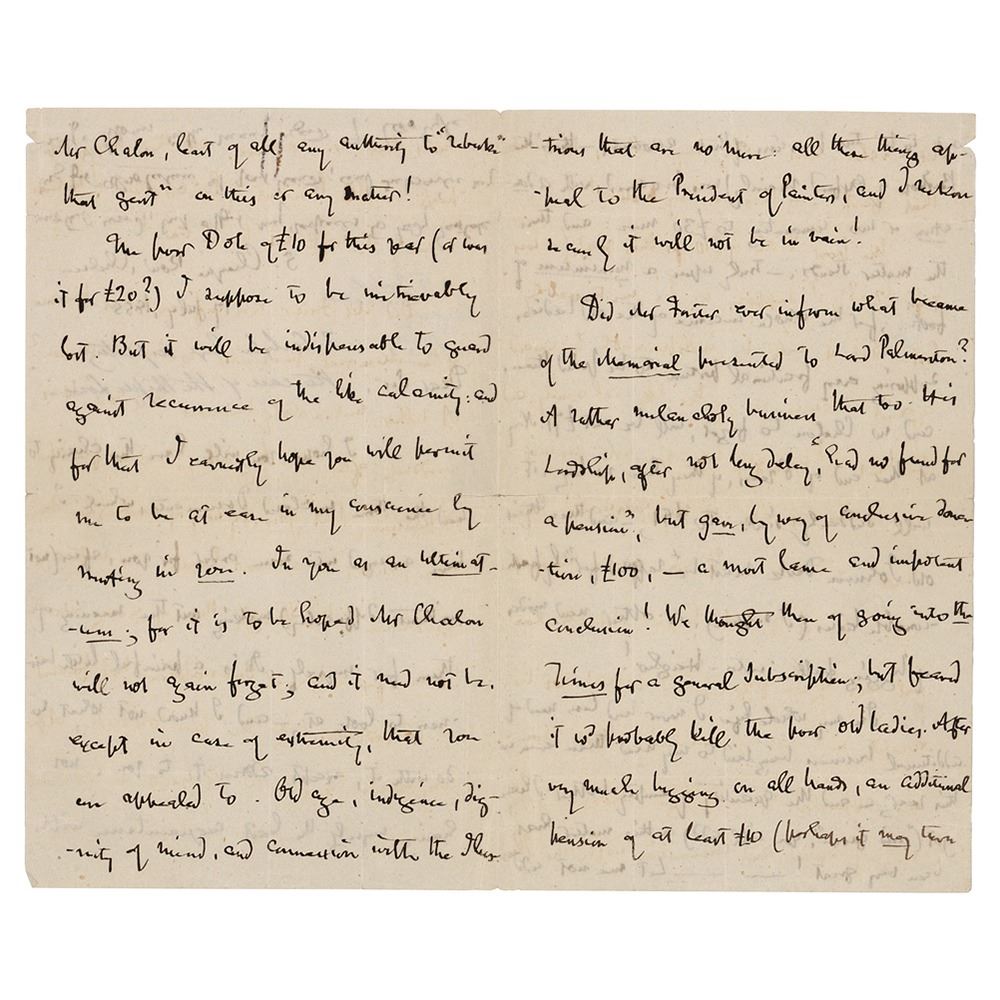 Mr Chalon, least of all any authority to "rebuke
that gent" on this or any matter!
The poor Dole of £10 for this year (or was
it for £20?) I suppose to be irretrievably
lost. But it will be indispensable to guard
against recurrence of the like calamity: and
for that I earnestly hope you will permit
me to be at ease in my conscience by
trusting in you. In you as an ultimat-
-um; for it is to be hoped Mr Chalon
will not again forget; and it need not be,
except in case of extremity, that you
are appealed to. Old age, indigence, dig-
-nity of mind, and connexion with the Illus-
-trious that are no more: all these things ap-
-peal to the President of Painters, and I reckon
securely it will not be in vain!
Did Mr Forster ever inform what became
of the Memorial presented to Lord Palmerston?
A rather melancholy business that too. His
Lordship, after not long delay, "had no fund for
a pension", but gave, by way of conclusive dona-
-tion, £100, — a most lame and impotent
conclusion! We thought then of going into the
Times for a general Subscription; but feared
it wd probably kill the poor old ladies. After
very much begging on all hands, an additional
pension of at least £10 (perhaps it may turn